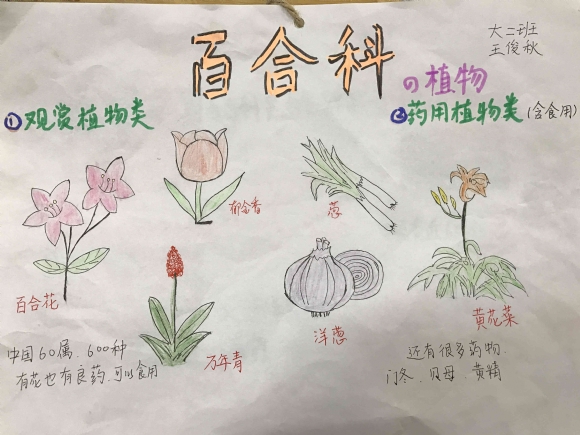 百合科
の植物
大二班
王俊秋
①观赏植物类
②药用植物类(含食用)
郁金香
葱
百合花
万年青
洋葱
黄花菜
中国60属、600种
有花也有良药,可以食用
还有很多药物.
门冬、贝母、黄精